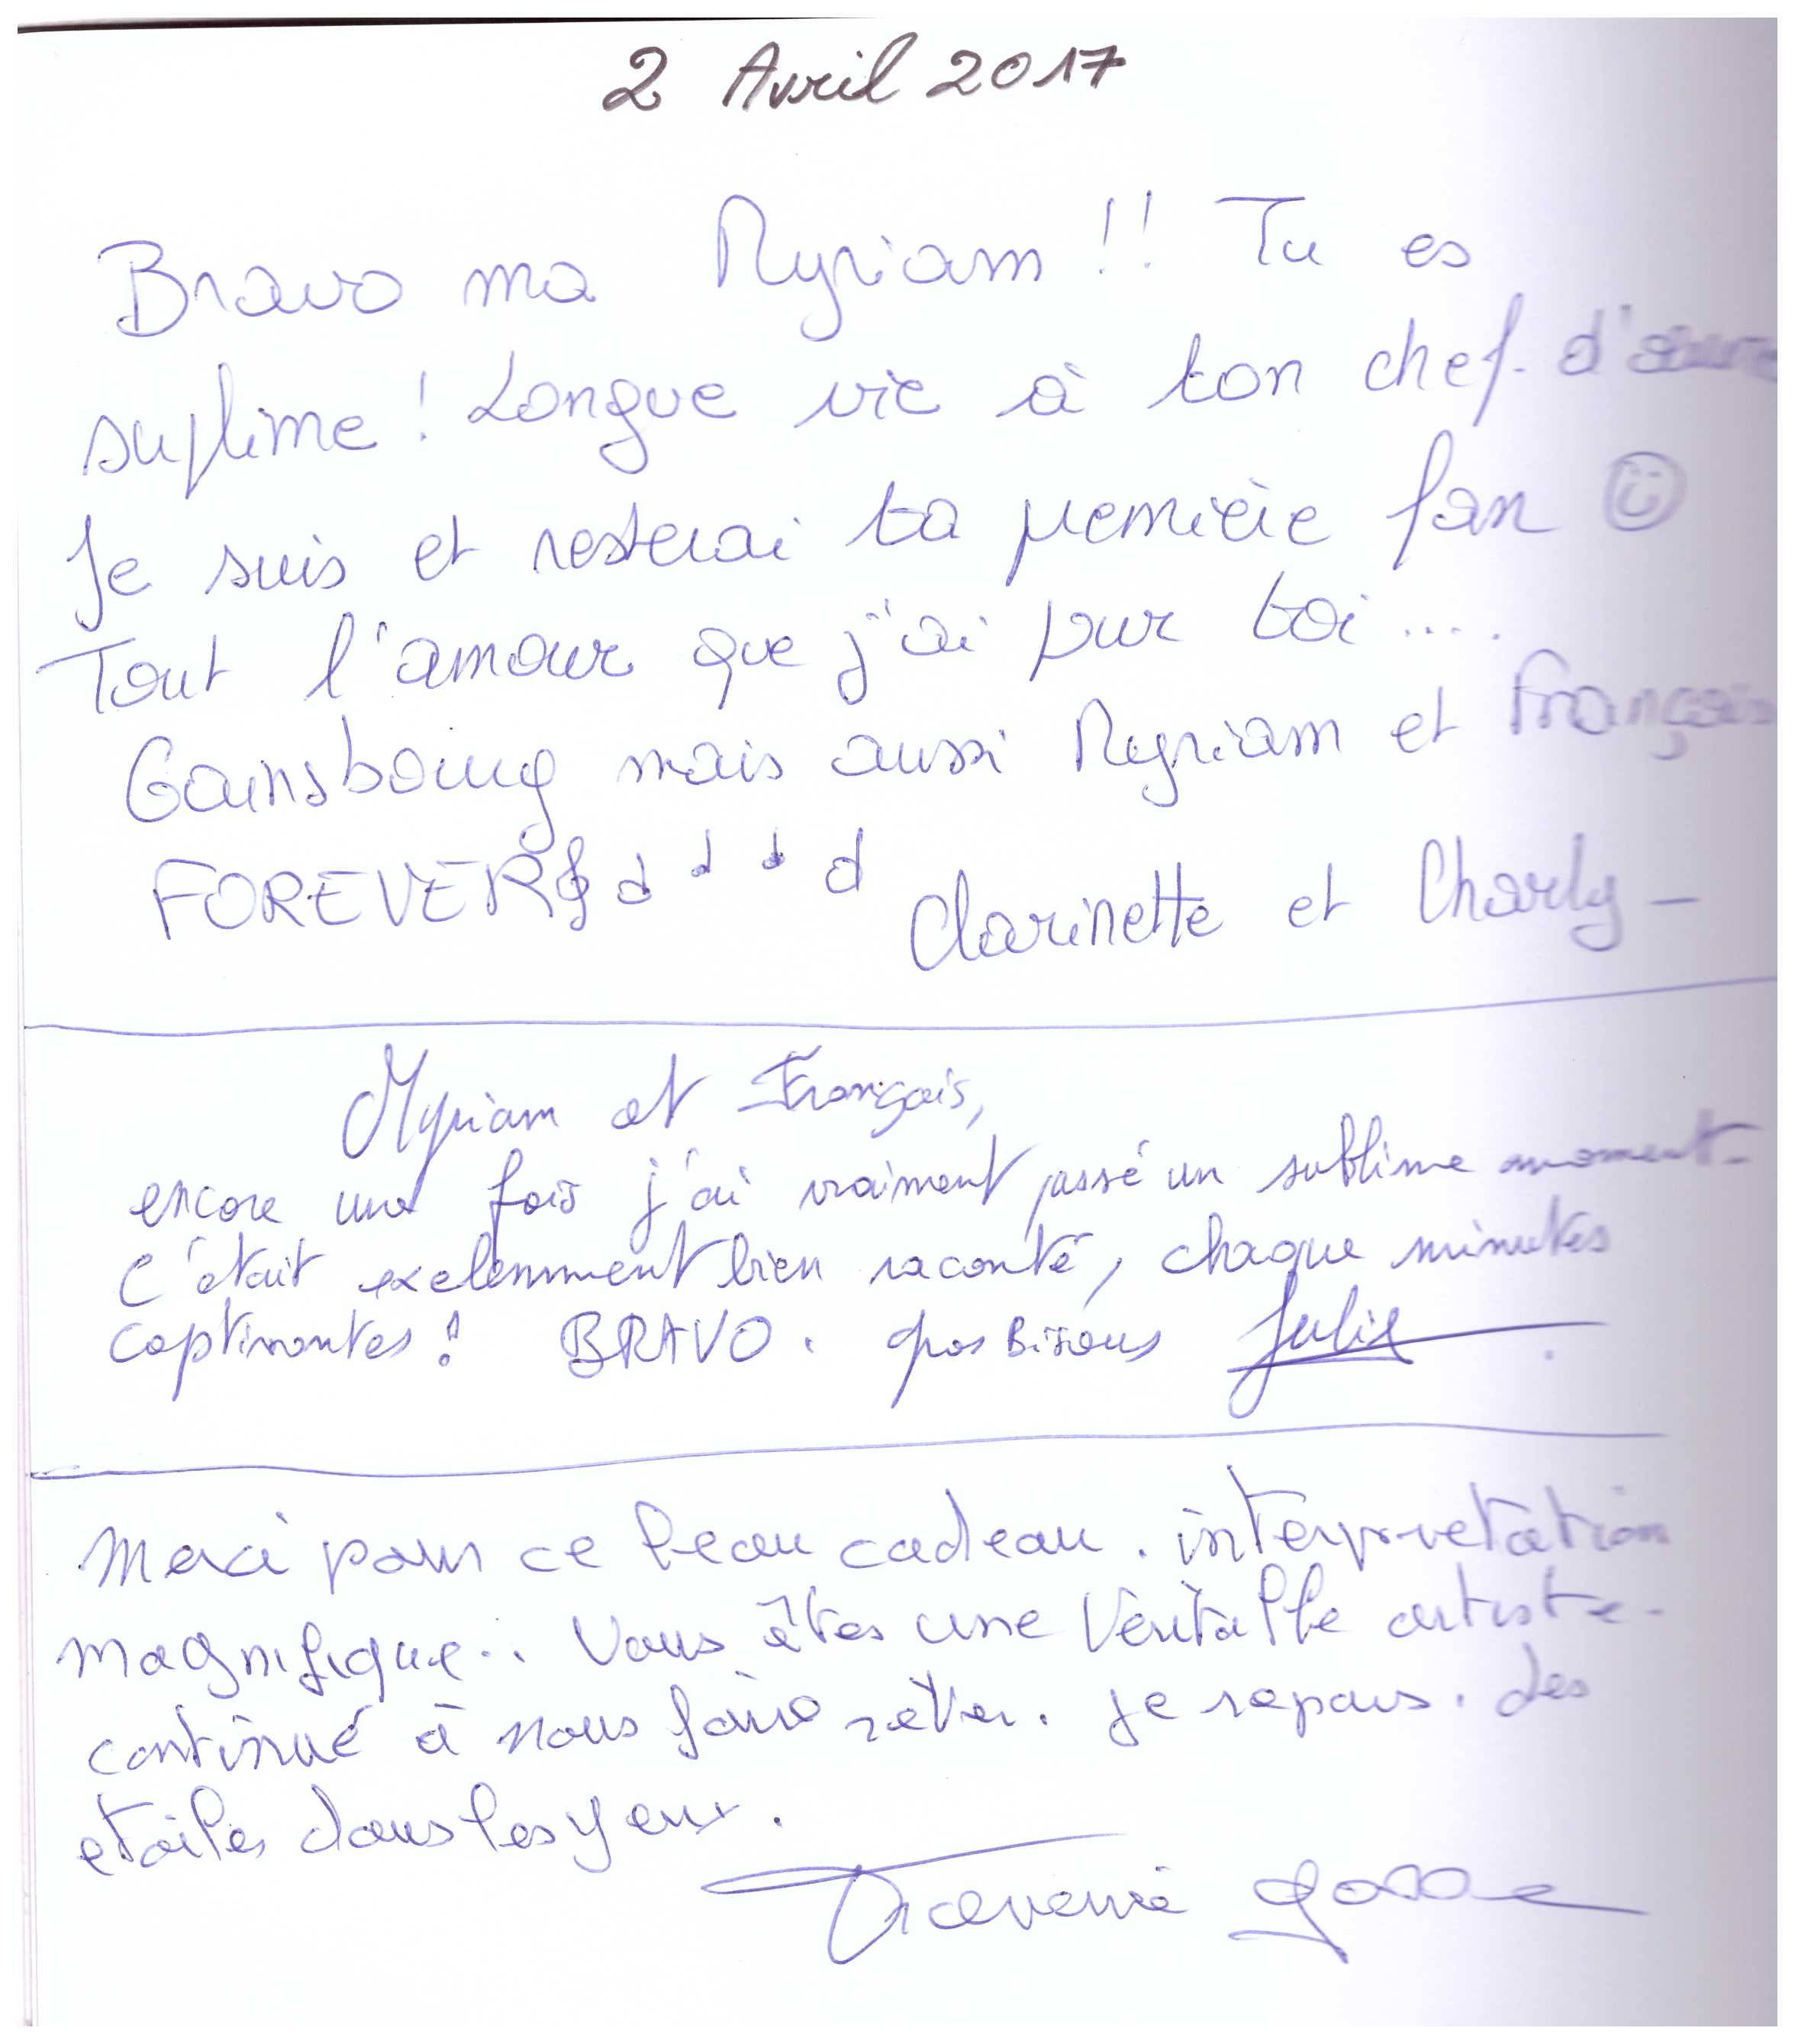 2 Avril 2017
Bravo ma Myriam !! Tu es
sublime ! Longue vie à ton chef-d'œuvre
Je suis et resterai ta première fan
Tout l'amour que j'ai pour toi ....
Gainsbourg mais aussi Myriam et François
FOREVER
Clarinette et Charly -
Myriam et François,
encore une fois j'ai vraiment passé un sublime moment.
C'était exelemment bien raconté, chaque minutes
captivantes ! BRAVO. gros Bisous Julie
Merci pour ce beau cadeau. interpretation
magnifique... Vous êtes une Véritable artiste.
continué à nous faire rêver. je repars. des
etoiles dans les yeux.